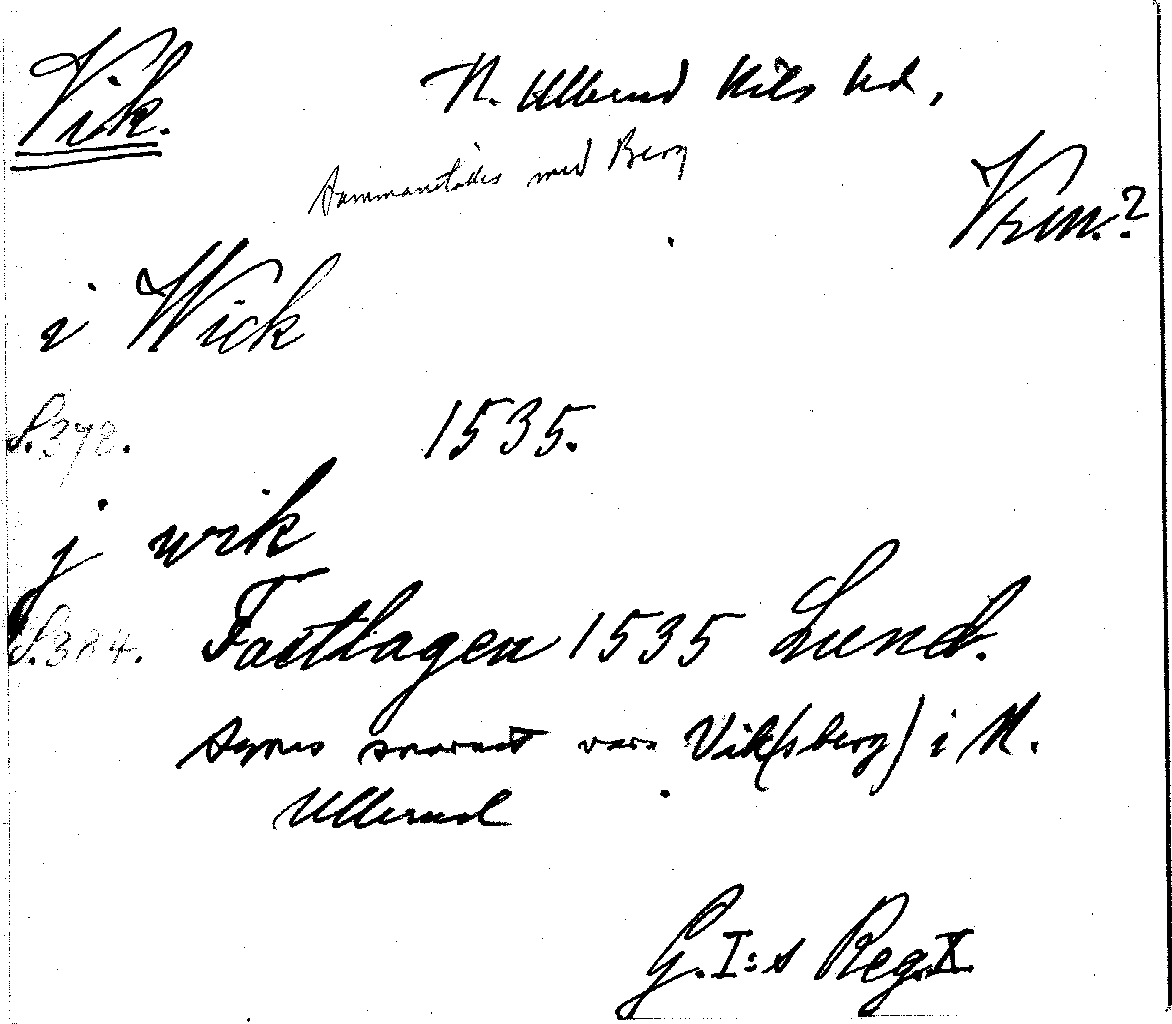 Vik. N. Ullerud Kils hd,
sammanställes med Berg
Vrm.?
i Wick
S. 378. 1535.
j wik
S. 384. Fastlagen 1535 Lund.
Synes snarast vara Vik(sberg) i N.
Ullerud
G. I:s Reg. X